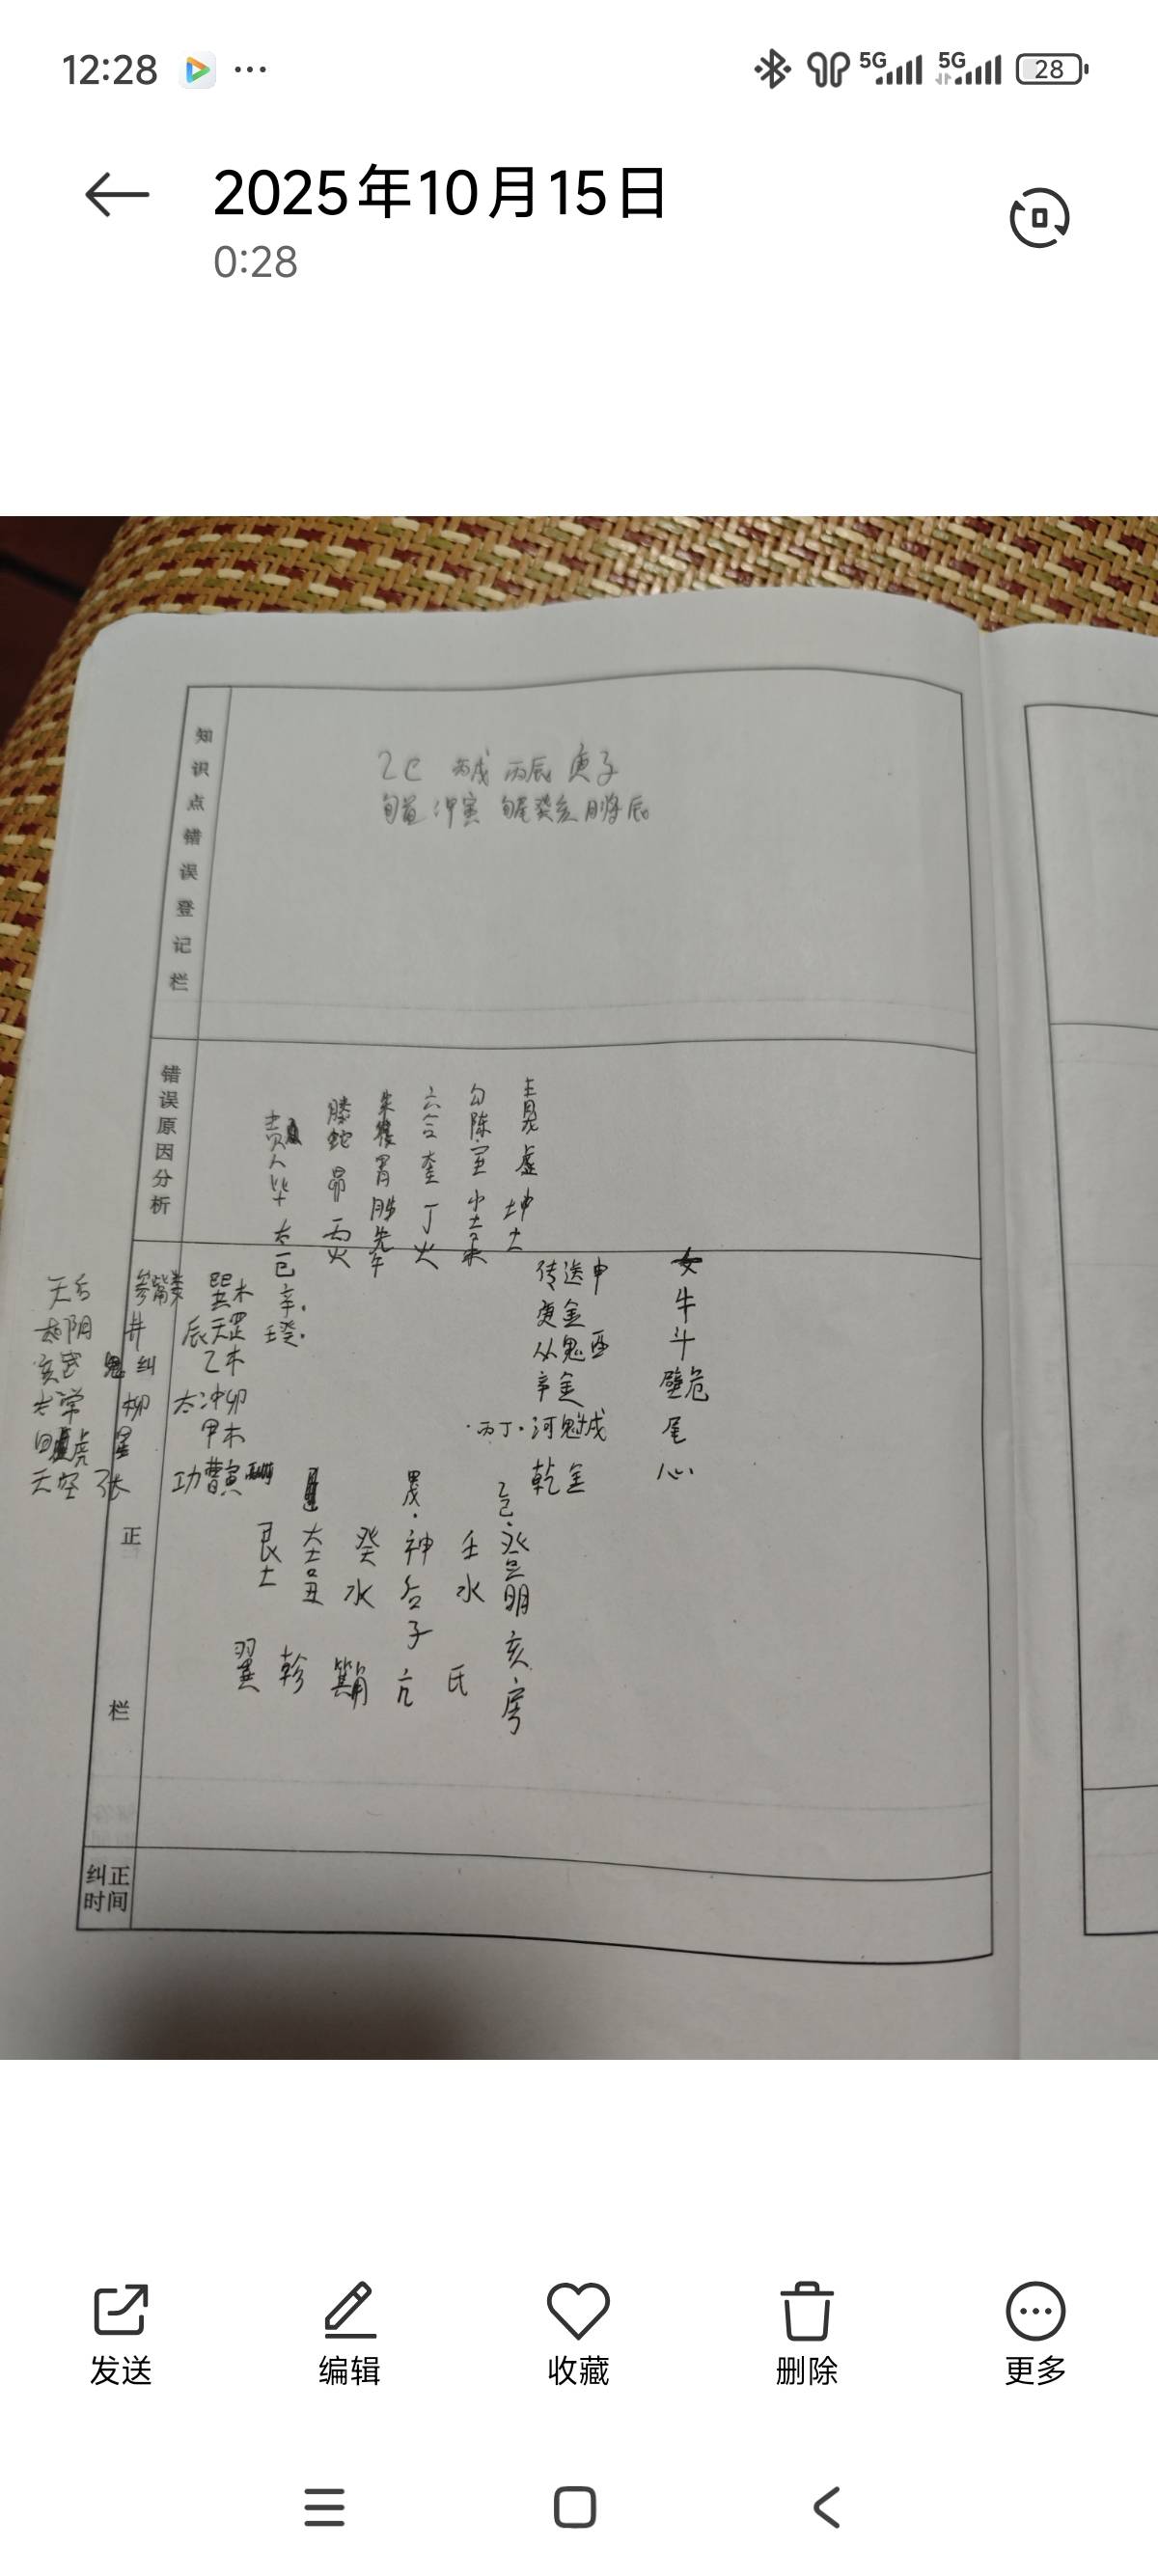 12:28
5G 5G 28
2025年10月15日
0:28
知识点错误登记栏
乙巳 丙戌 丙辰 庚子
旬首 甲寅 旬尾癸亥 月将辰
错误原因分析
贵人毕
太乙巳
辛.
螣蛇昴
丙火
朱雀胃
胜光午
六合奎
丁火
勾陈室
小吉未
青龙虚
坤土
天后 参觜娄 巽木
太阴 井 辰天罡 壬癸.
玄武 鬼 乙木
太常 柳 太冲卯
白虎 星 甲木
天空 张 功曹寅
传送申 女
庚金 牛
从魁酉 斗
辛金 壁危
·丙丁·河魁戌 尾
乾金 心
艮土
大吉丑
癸水
神后子
壬水
登明亥
翼 轸 箕角 亢 氐 房
纠正栏
纠正时间
发送 编辑 收藏 删除 更多